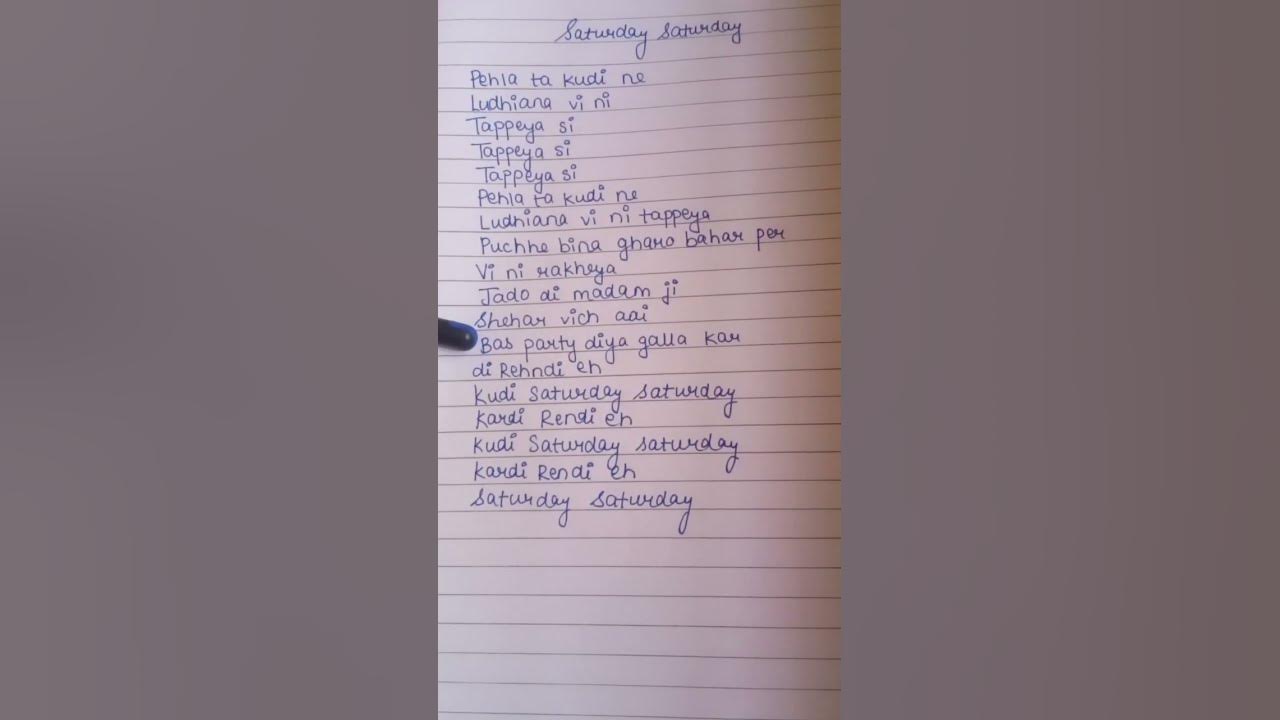 Saturday Saturday
Pehla ta kudi ne
Ludhiana vi ni
Tappeya si
Tappeya si
Tappeya si
Pehla ta kudi ne
Ludhiana vi ni tappeya
Puchhe bina gharo bahar per
Vi ni rakheya
Jado di madam ji
Shehar vich aai
Bas party diya galla kar
di Rehndi eh
Kudi Saturday saturday
Kardi Rendi eh
Kudi Saturday saturday
Kardi Rendi eh
Saturday Saturday